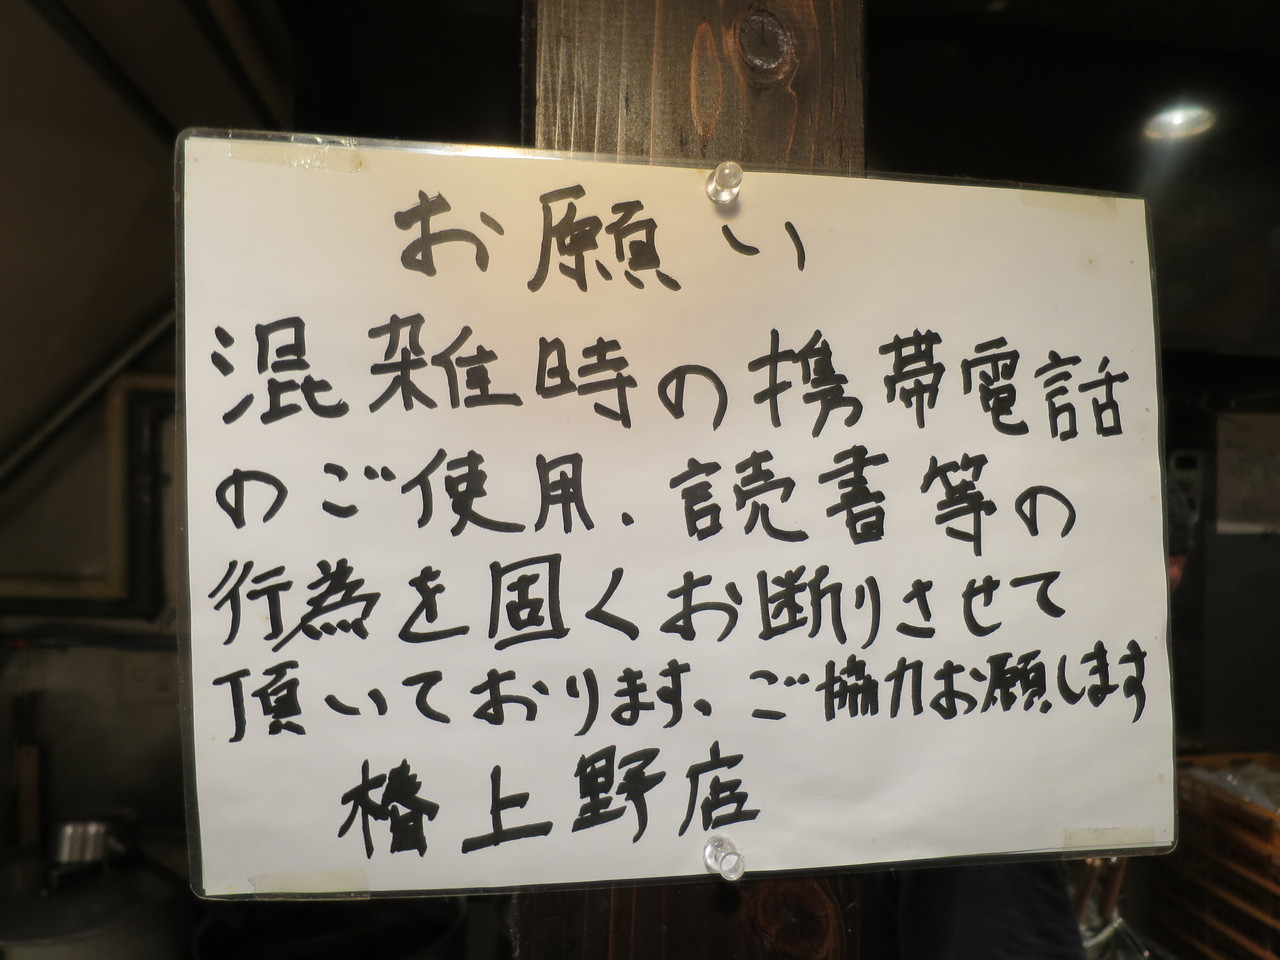 お願い
混雑時の携帯電話
のご使用.読書等の
行為を固くお断りさせて
頂いております、ご協力お願します
椿上野店